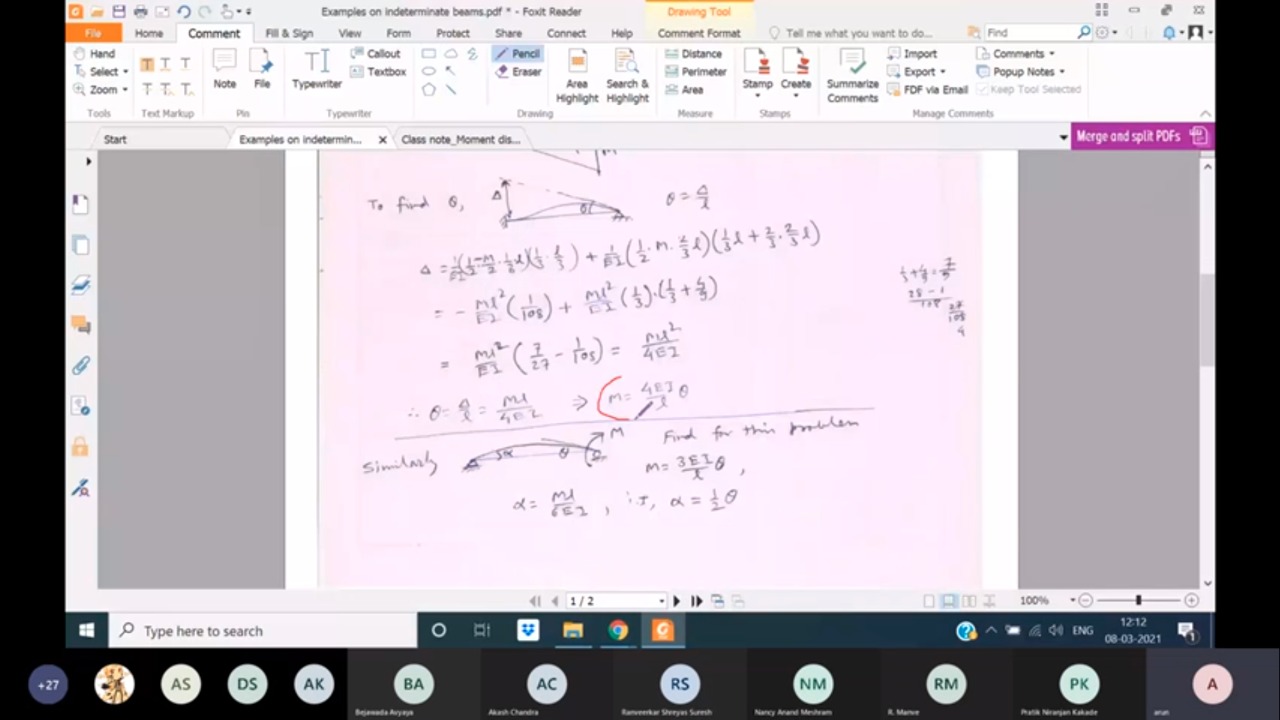 Examples on indeterminate beams.pdf * - Foxit Reader
Drawing Tool
File Home Comment Fill & Sign View Form Protect Share Connect Help Comment Format Tell me what you want to do... Find
Hand
Select
Zoom
Tools
Text Markup
Note
File
Pin
Typewriter
Callout
Textbox
Typewriter
Pencil
Eraser
Drawing
Area Highlight
Search & Highlight
Distance
Perimeter
Area
Measure
Stamp
Create
Stamps
Summarize Comments
Import
Export
FDF via Email
Comments
Popup Notes
Keep Tool Selected
Manage Comments
Start
Examples on indetermin...
Class note_Moment dis...
Merge and split PDFs
M
To find θ, Δ θ θ = Δ/l
Δ = 1/EI(1/2·-M/2·1/3l)(1/3·l/3) + 1/EI(1/2·M·2/3l)(1/3l + 2/3·2/3l)
1/3+4/9=7/9
28-1/108
27/108
4
= - Ml²/EI (1/108) + Ml²/EI (1/3)·(1/3 + 4/9)
= Ml²/EI (7/27 - 1/108) = Ml²/4EI
∴ θ = Δ/l = Ml/4EI ⇒ M = 4EI/l θ
Similarly α θ M Find for this problem
M = 3EI/l θ,
α = Ml/6EI , i.e, α = 1/2 θ
1 / 2
100%
Type here to search
ENG
12:12
08-03-2021
1
+27
AS
DS
AK
BA
Bejawada Avyaya
AC
Akash Chandra
RS
Ranveerkar Shreyas Suresh
NM
Nancy Anand Meshram
RM
R. Manve
PK
Pratik Niranjan Kakade
A
arun